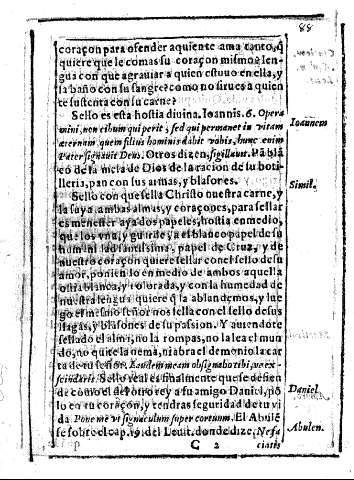 88
coraçon para ofender a quien te ama tanto, q̃
quiere que le comas su coraçon mismo? o len-
gua con que agrauiar a quien estuuo en ella, y
la baño con su sangre? como no sirues a quien
te sustenta con su carne?
Sello es esta hostia diuina. Ioannis. 6. Opera
mini, non cibum qui perit, sed qui permanet in vitam
æternum, quem filius hominis dabit vobis, hunc enim
Pater signauit Deus. Otros dizen, sigillauit. Pã blã
co de la mesa de Dios de la racion de su boti-
lleria, pan con sus armas, y blasones.
Sello con que sella Christo nuestra carne, y
la suya, ambas almas, y coraçones, para sellar
es menester aya dos papeles, hostia en medio,
que los vna, y guarde, a el blanco papel de su
humanidad santissima, papel de Cruz, y de
nuestro coraçon quiere sellar con el sello de su
amor, poniendo en medio de ambos aquella
ostia blanca, y colorada, y con la humedad de
nuestra lengua quiere q̃ la ablandemos, y lue
go el mesmo señor nos sella con el sello de sus
llagas, y blasones de su passion. Y auiendote
sellado el alma, no la rompas, no la lea el mun
do, no quite la nema, ni abra el demonio la car
ta de tu señor. Laudem meam obsignabo tibi, ne ex-
scindaris. Sello real es finalmente que se defien
de como el del otro rey a su amigo Daniel, põ
lo en tu coraçon, y tendras seguridad de tu vi
da. Pone me vt signaculum super cor tuum. El Abulẽ
se sobre el cap. 19. del Leuit. donde dize, Ne fa
C 2
ciatis
Ioannem
Simil.
Daniel
Abulen.